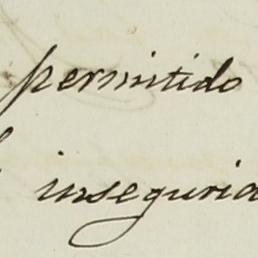 permitido
insegurid